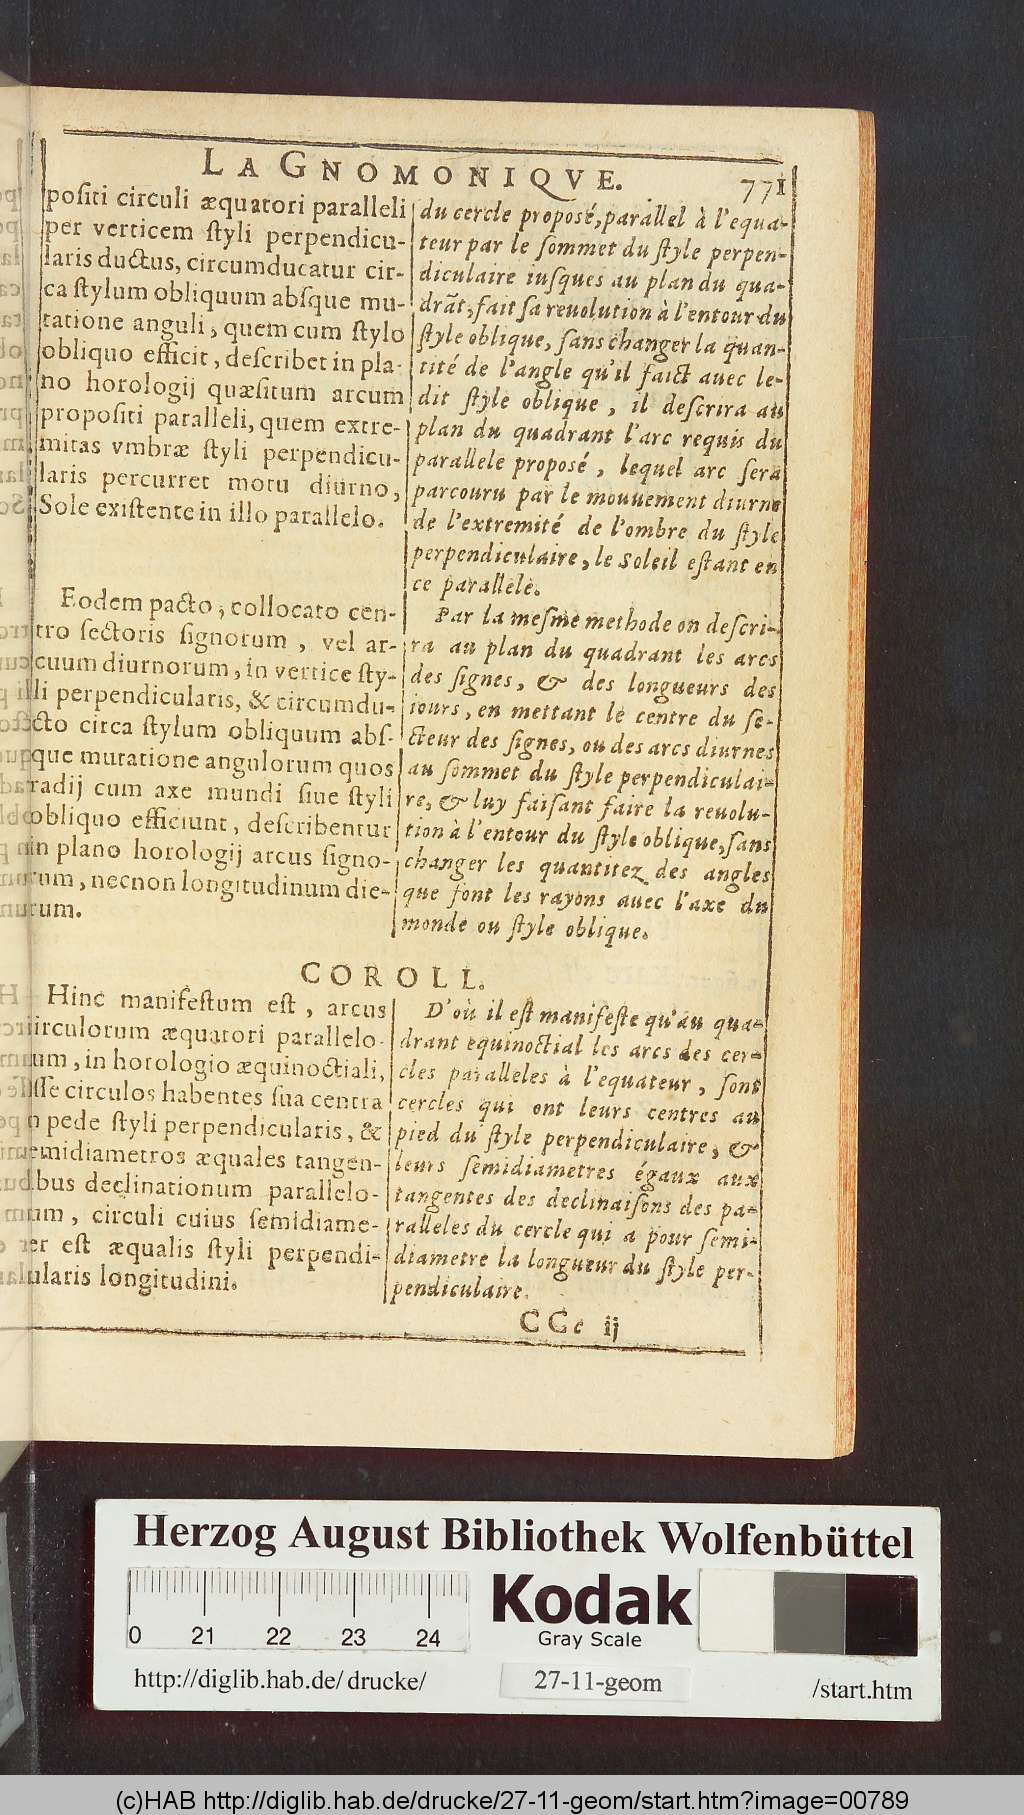 LA GNOMONIQVE. 771
positi circuli æquatori paralleli
per verticem styli perpendicu-
laris ductus, circumducatur cir-
ca stylum obliquum absque mu-
tatione anguli, quem cum stylo
obliquo efficit, describet in pla-
no horologij quæsitum arcum
propositi paralleli, quem extre-
mitas vmbræ styli perpendicu-
laris percurret motu diurno,
Sole existente in illo parallelo.
Eodem pacto, collocato cen-
tro sectoris signorum, vel ar-
cuum diurnorum, in vertice sty-
li perpendicularis, & circumdu-
cto circa stylum obliquum abs-
que mutatione angulorum quos
radij cum axe mundi siue styli
obliquo efficiunt, describentur
in plano horologij arcus signo-
rum, necnon longitudinum die-
rum.
du cercle proposé, parallel à l'equa-
teur par le sommet du style perpen-
diculaire iusques au plan du qua-
drāt, fait sa reuolution à l'entour du
style oblique, sans changer la quan-
tité de l'angle qu'il faict auec le-
dit style oblique, il descrira au
plan du quadrant l'arc requis du
parallele proposé, lequel arc sera
parcouru par le mouuement diurne
de l'extremité de l'ombre du style
perpendiculaire, le Soleil estant en
ce parallele.
Par la mesme methode on descri-
ra au plan du quadrant les arcs
des signes, & des longueurs des
iours, en mettant le centre du se-
cteur des signes, ou des arcs diurnes
au sommet du style perpendiculai-
re, & luy faisant faire la reuolu-
tion à l'entour du style oblique, sans
changer les quantitez des angles
que font les rayons auec l'axe du
monde ou style oblique.
COROLL.
Hinc manifestum est, arcus
circulorum æquatori parallelo-
rum, in horologio æquinoctiali,
esse circulos habentes sua centra
in pede styli perpendicularis, &
semidiametros æquales tangen-
tibus declinationum parallelo-
rum, circuli cuius semidiame-
ter est æqualis styli perpendi-
cularis longitudini.
D'où il est manifeste qu'au qua-
drant equinoctial les arcs des cer-
cles paralleles à l'equateur, sont
cercles qui ont leurs centres au
pied du style perpendiculaire, &
leurs semidiametres égaux aux
tangentes des declinaisons des pa-
ralleles du cercle qui a pour semi-
diametre la longueur du style per-
pendiculaire.
CCc ij
Herzog August Bibliothek Wolfenbüttel
0 21 22 23 24
Kodak
Gray Scale
http://diglib.hab.de/ drucke/ 27-11-geom /start.htm
(c)HAB http://diglib.hab.de/drucke/27-11-geom/start.htm?image=00789